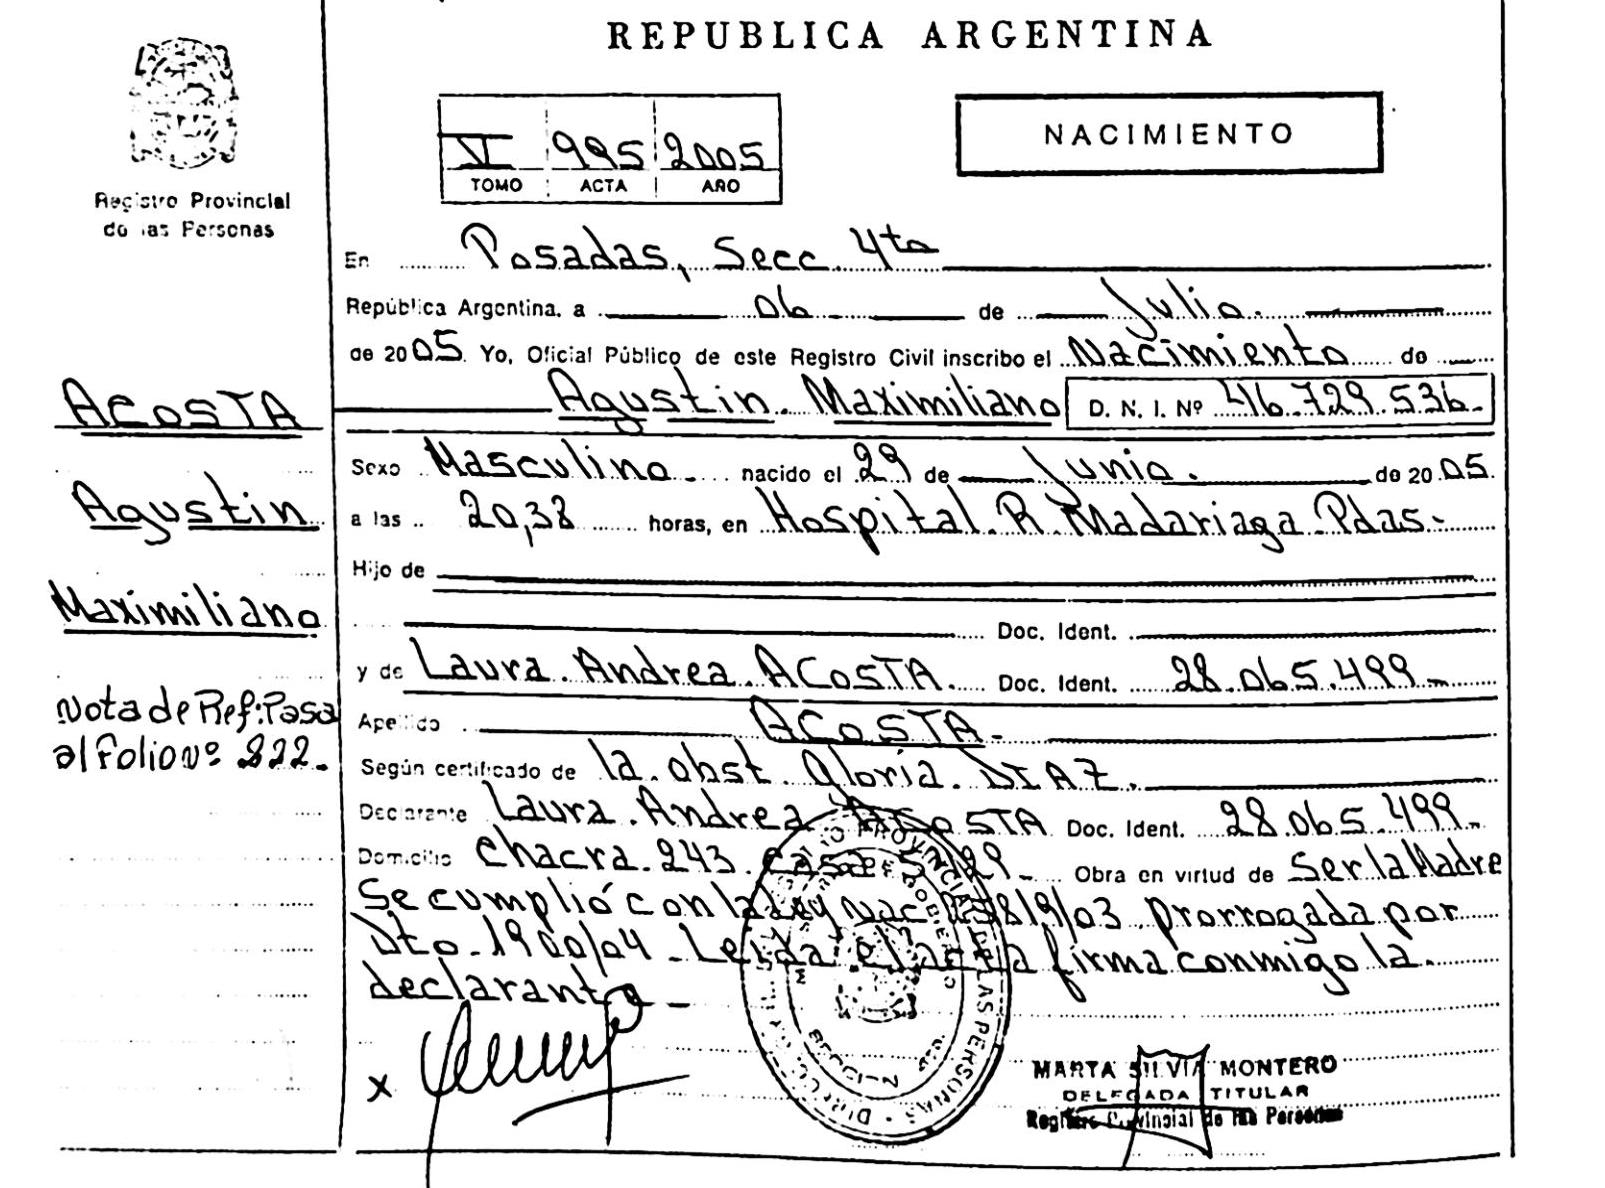 REPUBLICA ARGENTINA
NACIMIENTO
VI 995 2005
TOMO ACTA AÑO
Registro Provincial
de las Personas
En Posadas, Secc 4ta
República Argentina, a 06 de Julio.
de 2005. Yo, Oficial Público de este Registro Civil inscribo el Nacimiento de
Agustin Maximiliano D. N. I. Nº 46.729.536-
ACOSTA
Agustin
Maximiliano
Nota de Ref: Pasa
al folio Nº 222-
Sexo Masculino nacido el 29 de Junio. de 2005.
a las 20,38 horas, en Hospital R. Madariaga Pdas-
Hijo de
Doc. Ident.
y de Laura Andrea ACOSTA. Doc. Ident. 28.065.499-
Apellido ACOSTA-
Según certificado de la obst Gloria DIAZ.
Declarante Laura Andrea ACOSTA Doc. Ident. 28.065.499-
Domicilio Chacra 243 casa 29- Obra en virtud de Ser la Madre
Se cumplió con la Ley Nac 25819/03 prorrogada por
Dto. 1900/04 - Leida el acta firma conmigo la
declarante-
x
MARTA SILVIA MONTERO
DELEGADA TITULAR
Registro Provincial de las Personas